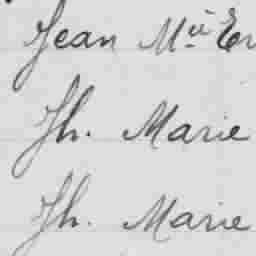 Jean M.ie Er
Jh. Marie
Jh. Marie